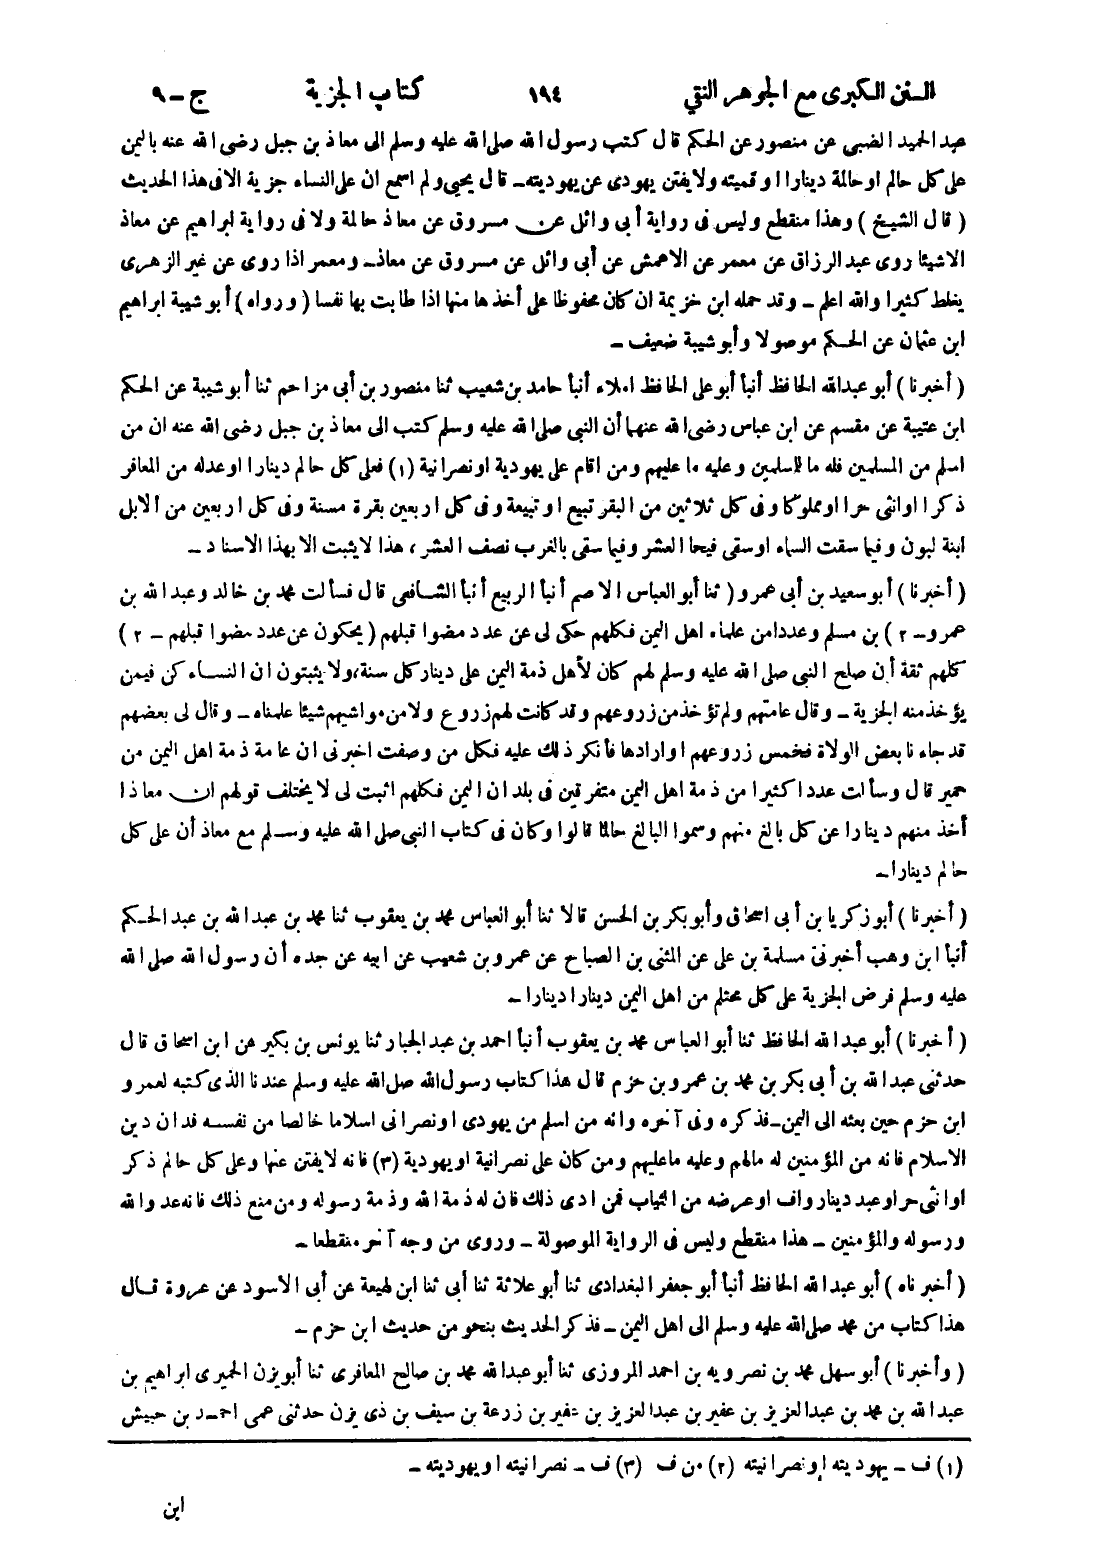 السنن الكبرى مع الجوهر النقي ١٩٤ كتاب الجزية ج-٩
عبد الحميد الضبى عن منصور عن الحكم قال كتب رسول الله صلى الله عليه وسلم الى معاذ بن جبل رضى الله عنه باليمن
على كل حالم او حالمة دينارا او قميته ولا يفتن يهودى عن يهوديته- قال يحيى ولم اسمع ان على النساء جزية الا فى هذا الحديث
( قال الشيخ ) وهذا منقطع وليس فى رواية أبى وائل عن مسروق عن معاذ حالمة ولا فى رواية ابراهيم عن معاذ
الا شيئا روى عبد الرزاق عن معمر عن الاعمش عن أبى وائل عن مسروق عن معاذ- ومعمر اذا روى عن غير الزهرى
يغلط كثيرا والله اعلم - وقد حمله ابن خزيمة ان كان محفوظا على أخذها منها اذا طابت بها نفسا ( ورواه ) أبو شيبة ابراهيم
ابن عثمان عن الحكم موصولا وأبو شيبة ضعيف -
( أخبرنا ) أبو عبدالله الحافظ أنبأ أبو على الحافظ املاء أنبأ حامد بن شعيب ثنا منصور بن أبى مزاحم ثنا أبو شيبة عن الحكم
ابن عتيبة عن مقسم عن ابن عباس رضى الله عنهما أن النبى صلى الله عليه وسلم كتب الى معاذ بن جبل رضى الله عنه ان من
اسلم من المسلمين فله ما للمسلمين وعليه ما عليهم ومن اقام على يهودية او نصرانية (١) فعلى كل حالم دينارا او عدله من المعافر
ذكرا او انثى حرا او مملوكا وفى كل ثلاثين من البقر تبيع او تبيعة وفى كل اربعين بقرة مسنة وفى كل اربعين من الابل
ابنة لبون وفيما سقت السماء او سقى فيحا العشر وفيما سقى بالغرب نصف العشر ، هذا لا يثبت الا بهذا الاسناد -
( أخبرنا ) أبو سعيد بن أبى عمرو ( ثنا أبو العباس الاصم أنبأ الربيع أنبأ الشافعى قال فسألت محمد بن خالد وعبد الله بن
عمرو- ٢ ) بن مسلم وعددا من علماء اهل اليمن فكلهم حكى لى عن عدد مضوا قبلهم ( يحكون عن عدد مضوا قبلهم - ٢ )
كلهم ثقة أن صلح النبى صلى الله عليه وسلم لهم كان لأهل ذمة اليمن على دينار كل سنة، ولا يثبتون ان النساء كن فيمن
يؤخذ منه الجزية - وقال عامتهم ولم تؤخذ من زروعهم وقد كانت لهم زروع ولا من مواشيهم شيئا علمناه - وقال لى بعضهم
قد جاءنا بعض الولاة فخمس زروعهم او ارادها فأنكر ذلك عليه فكل من وصفت اخبرنى ان عامة ذمة اهل اليمن من
حمير قال وسألت عددا كثيرا من ذمة اهل اليمن متفرقين فى بلدان اليمن فكلهم اثبت لى لا يختلف قولهم ان معاذا
أخذ منهم دينارا عن كل بالغ منهم وسموا البالغ حالما قالوا وكان فى كتاب النبى صلى الله عليه وسلم مع معاذ أن على كل
حالم دينارا-
( أخبرنا ) أبو زكريا بن أبى اسحاق وأبو بكر بن الحسن قالا ثنا أبو العباس محمد بن يعقوب ثنا محمد بن عبد الله بن عبد الحكم
أنبأ ابن وهب أخبرنى مسلمة بن على عن المثنى بن الصباح عن عمرو بن شعيب عن ابيه عن جده أن رسول الله صلى الله
عليه وسلم فرض الجزية على كل محتلم من اهل اليمن دينارا دينارا -
( أخبرنا ) أبو عبد الله الحافظ ثنا أبو العباس محمد بن يعقوب أنبأ احمد بن عبد الجبار ثنا يونس بن بكير عن ابن اسحاق قال
حدثنى عبد الله بن أبى بكر بن محمد بن عمرو بن حزم قال هذا كتاب رسول الله صلى الله عليه وسلم عندنا الذى كتبه لعمرو
ابن حزم حين بعثه الى اليمن-فذكره وفى آخره وانه من اسلم من يهودى او نصرانى اسلاما خالصا من نفسه فدان دين
الاسلام فانه من المؤمنين له مالهم وعليه ما عليهم ومن كان على نصرانية او يهودية (٣) فانه لا يفتن عنها وعلى كل حالم ذكر
او انثى حر او عبد دينار واف او عرضه من الثياب فمن ادى ذلك فان له ذمة الله وذمة رسوله ومن منع ذلك فانه عدو الله
ورسوله والمؤمنين - هذا منقطع وليس فى الرواية الموصولة - وروى من وجه آخر منقطعا -
( أخبرناه ) أبو عبد الله الحافظ أنبأ أبو جعفر البغدادى ثنا أبو علاثة ثنا أبى ثنا ابن لهيعة عن أبى الاسود عن عروة قال
هذا كتاب من محمد صلى الله عليه وسلم الى اهل اليمن - فذكر الحديث بنحو من حديث ابن حزم -
( وأخبرنا ) أبو سهل محمد بن نصرويه بن احمد المروزى ثنا أبو عبدالله محمد بن صالح المعافرى ثنا أبو يزن الحميرى ابراهيم بن
عبد الله بن محمد بن عبد العزيز بن عفير بن عبد العزيز بن عفير بن زرعة بن سيف بن ذى يزن حدثنى عمى احمد بن حبيش
(١) ف - يهوديته او نصرانيته (٢) من ف (٣) ف - نصرانيته او يهوديته -
ابن